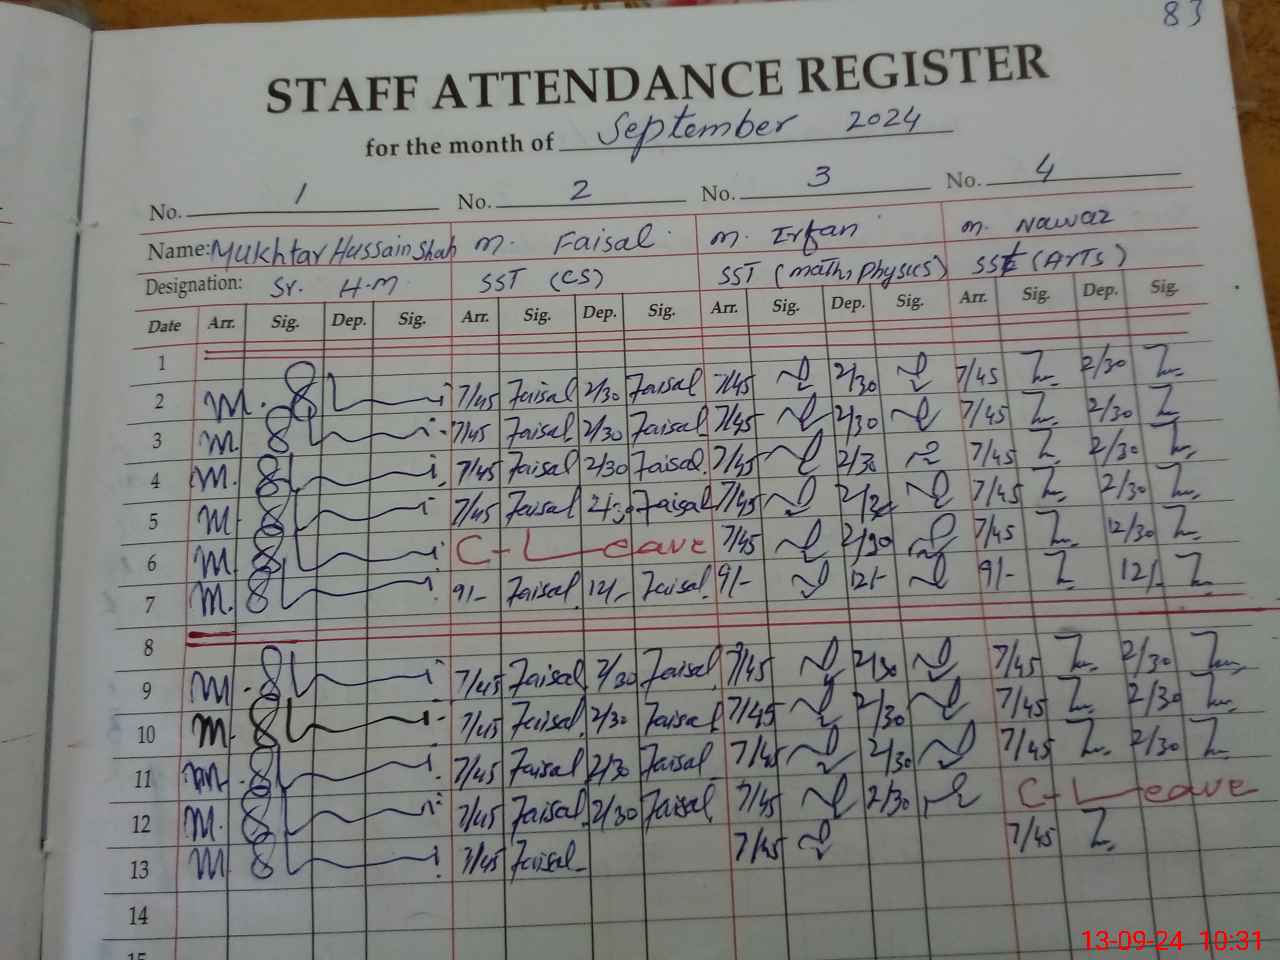 83
STAFF ATTENDANCE REGISTER
for the month of September 2024
No. 1 No. 2 No. 3 No. 4
Name: Mukhtar Hussain Shah M. Faisal M. Irfan M. Nawaz
Designation: Sr. H.M. SST (CS) SST (maths, physics) SST (ARTS)
Date Arr. Sig. Dep. Sig. Arr. Sig. Dep. Sig. Arr. Sig. Dep. Sig. Arr. Sig. Dep. Sig.
1
2 7/45 Faisal 2/30 Faisal 7/45 2/30 7/45 2/30
3 7/45 Faisal 2/30 Faisal 7/45 2/30 7/45 2/30
4 7/45 Faisal 2/30 Faisal 7/45 2/30 7/45 2/30
5 7/45 Faisal 2/30 Faisal 7/45 2/30 7/45 2/30
6 C-Leave 7/45 2/30 7/45 12/30
7 9/- Faisal 12/- Faisal 9/- 12/- 9/- 12/-
8
9 7/45 Faisal 2/30 Faisal 7/45 2/30 7/45 2/30
10 7/45 Faisal 2/30 Faisal 7/45 2/30 7/45 2/30
11 7/45 Faisal 2/30 Faisal 7/45 2/30 7/45 2/30
12 7/45 Faisal 2/30 Faisal 7/45 2/30 C-Leave
13 7/45 Faisal 7/45 7/45
14
15
13-09-24 10:31